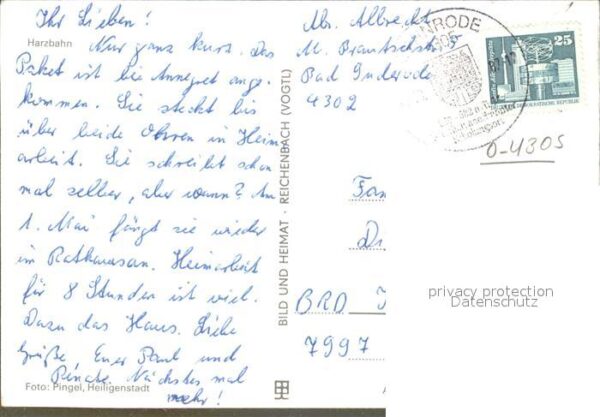 Ihr Lieben!
Harzbahn
Nur ganz kurz. Das
Paket ist bei Annegret ange-
kommen. Sie steckt bis
über beide Ohren in Heim
arbeit. Sie schreibt schon
mal selber, aber wann? Am
1. Mai fängt sie wieder
im Rathaus an. Heimarbeit
für 8 Stunden ist viel.
Dazu das Haus. Liebe
Grüße, Euer Paul und
Renate. Nächstes mal
mehr!
Foto: Pingel, Heiligenstadt
BILD UND HEIMAT · REICHENBACH (VOGTL)
Abs. Albrecht
M. Brautzschstr 5
Bad Suderode
4302
NRODE
25
DEMOKRATISCHE REPUBLIK
0-4305
Fam
BRD
7997
privacy protection
Datenschutz